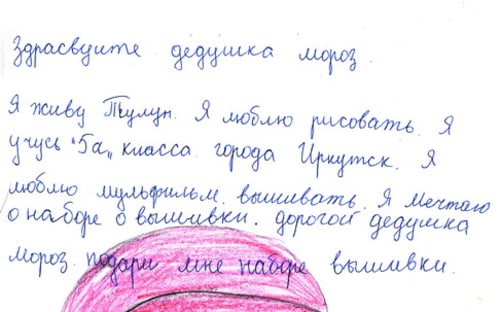 Здрасвуите дедушка мороз.
Я живу Тулун. Я люблю рисовать. Я
учусь "5а" класса. города Иркутск. Я
люблю мульфильм. вышивать. Я мечтаю
о наборе о вышивки. дорогой дедушка
мороз. подари мне наборе вышивки.